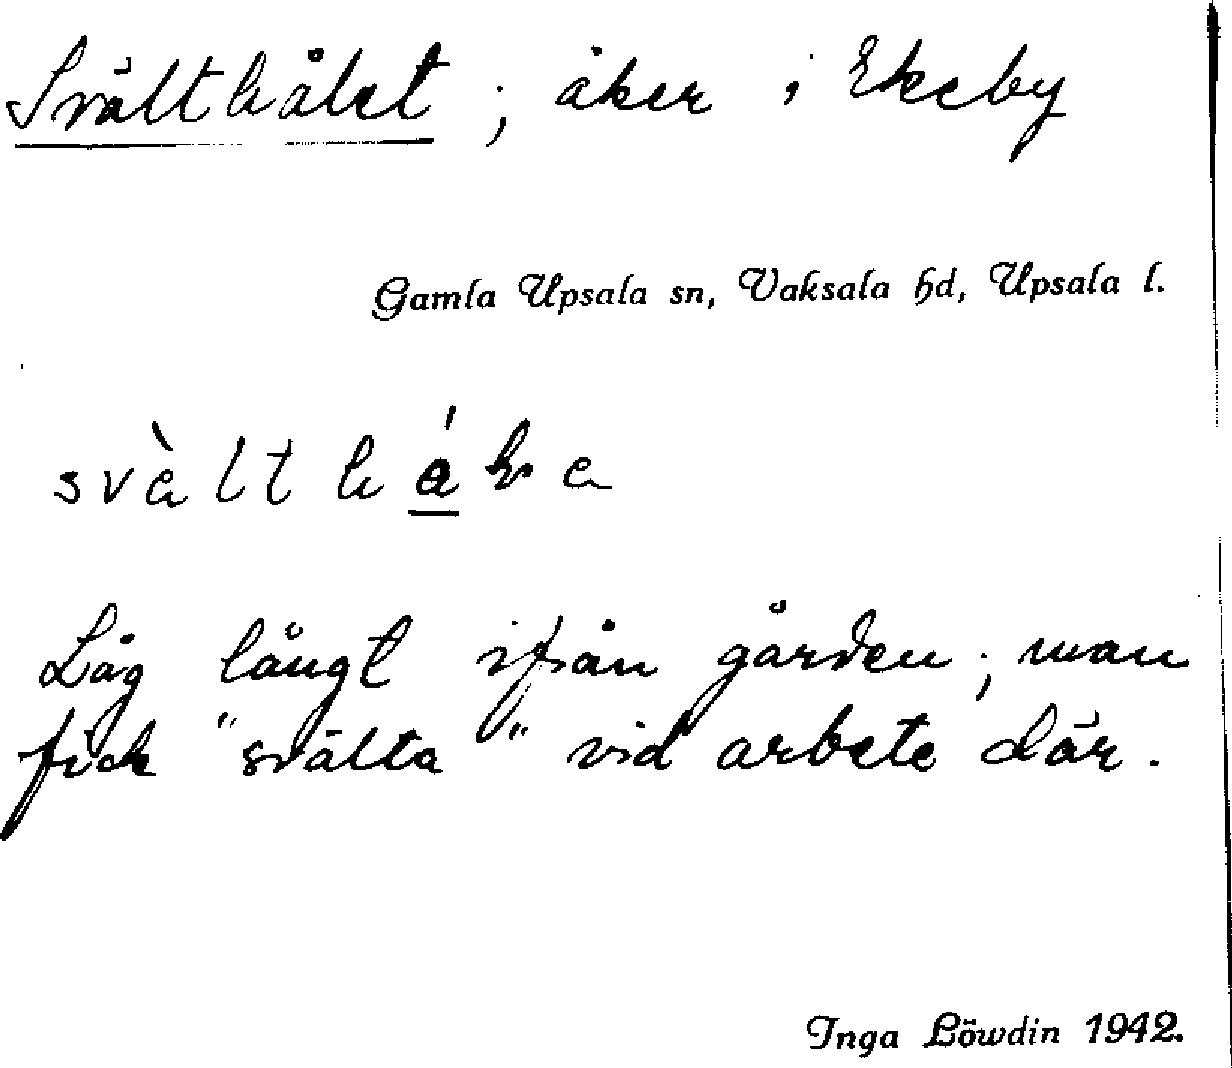 Svälthålet; åker i Ekeby
Gamla Upsala sn, Vaksala hd, Upsala l.
Låg långt ifrån gården; man
fick "svälta" vid arbete där.
Inga Löwdin 1942.